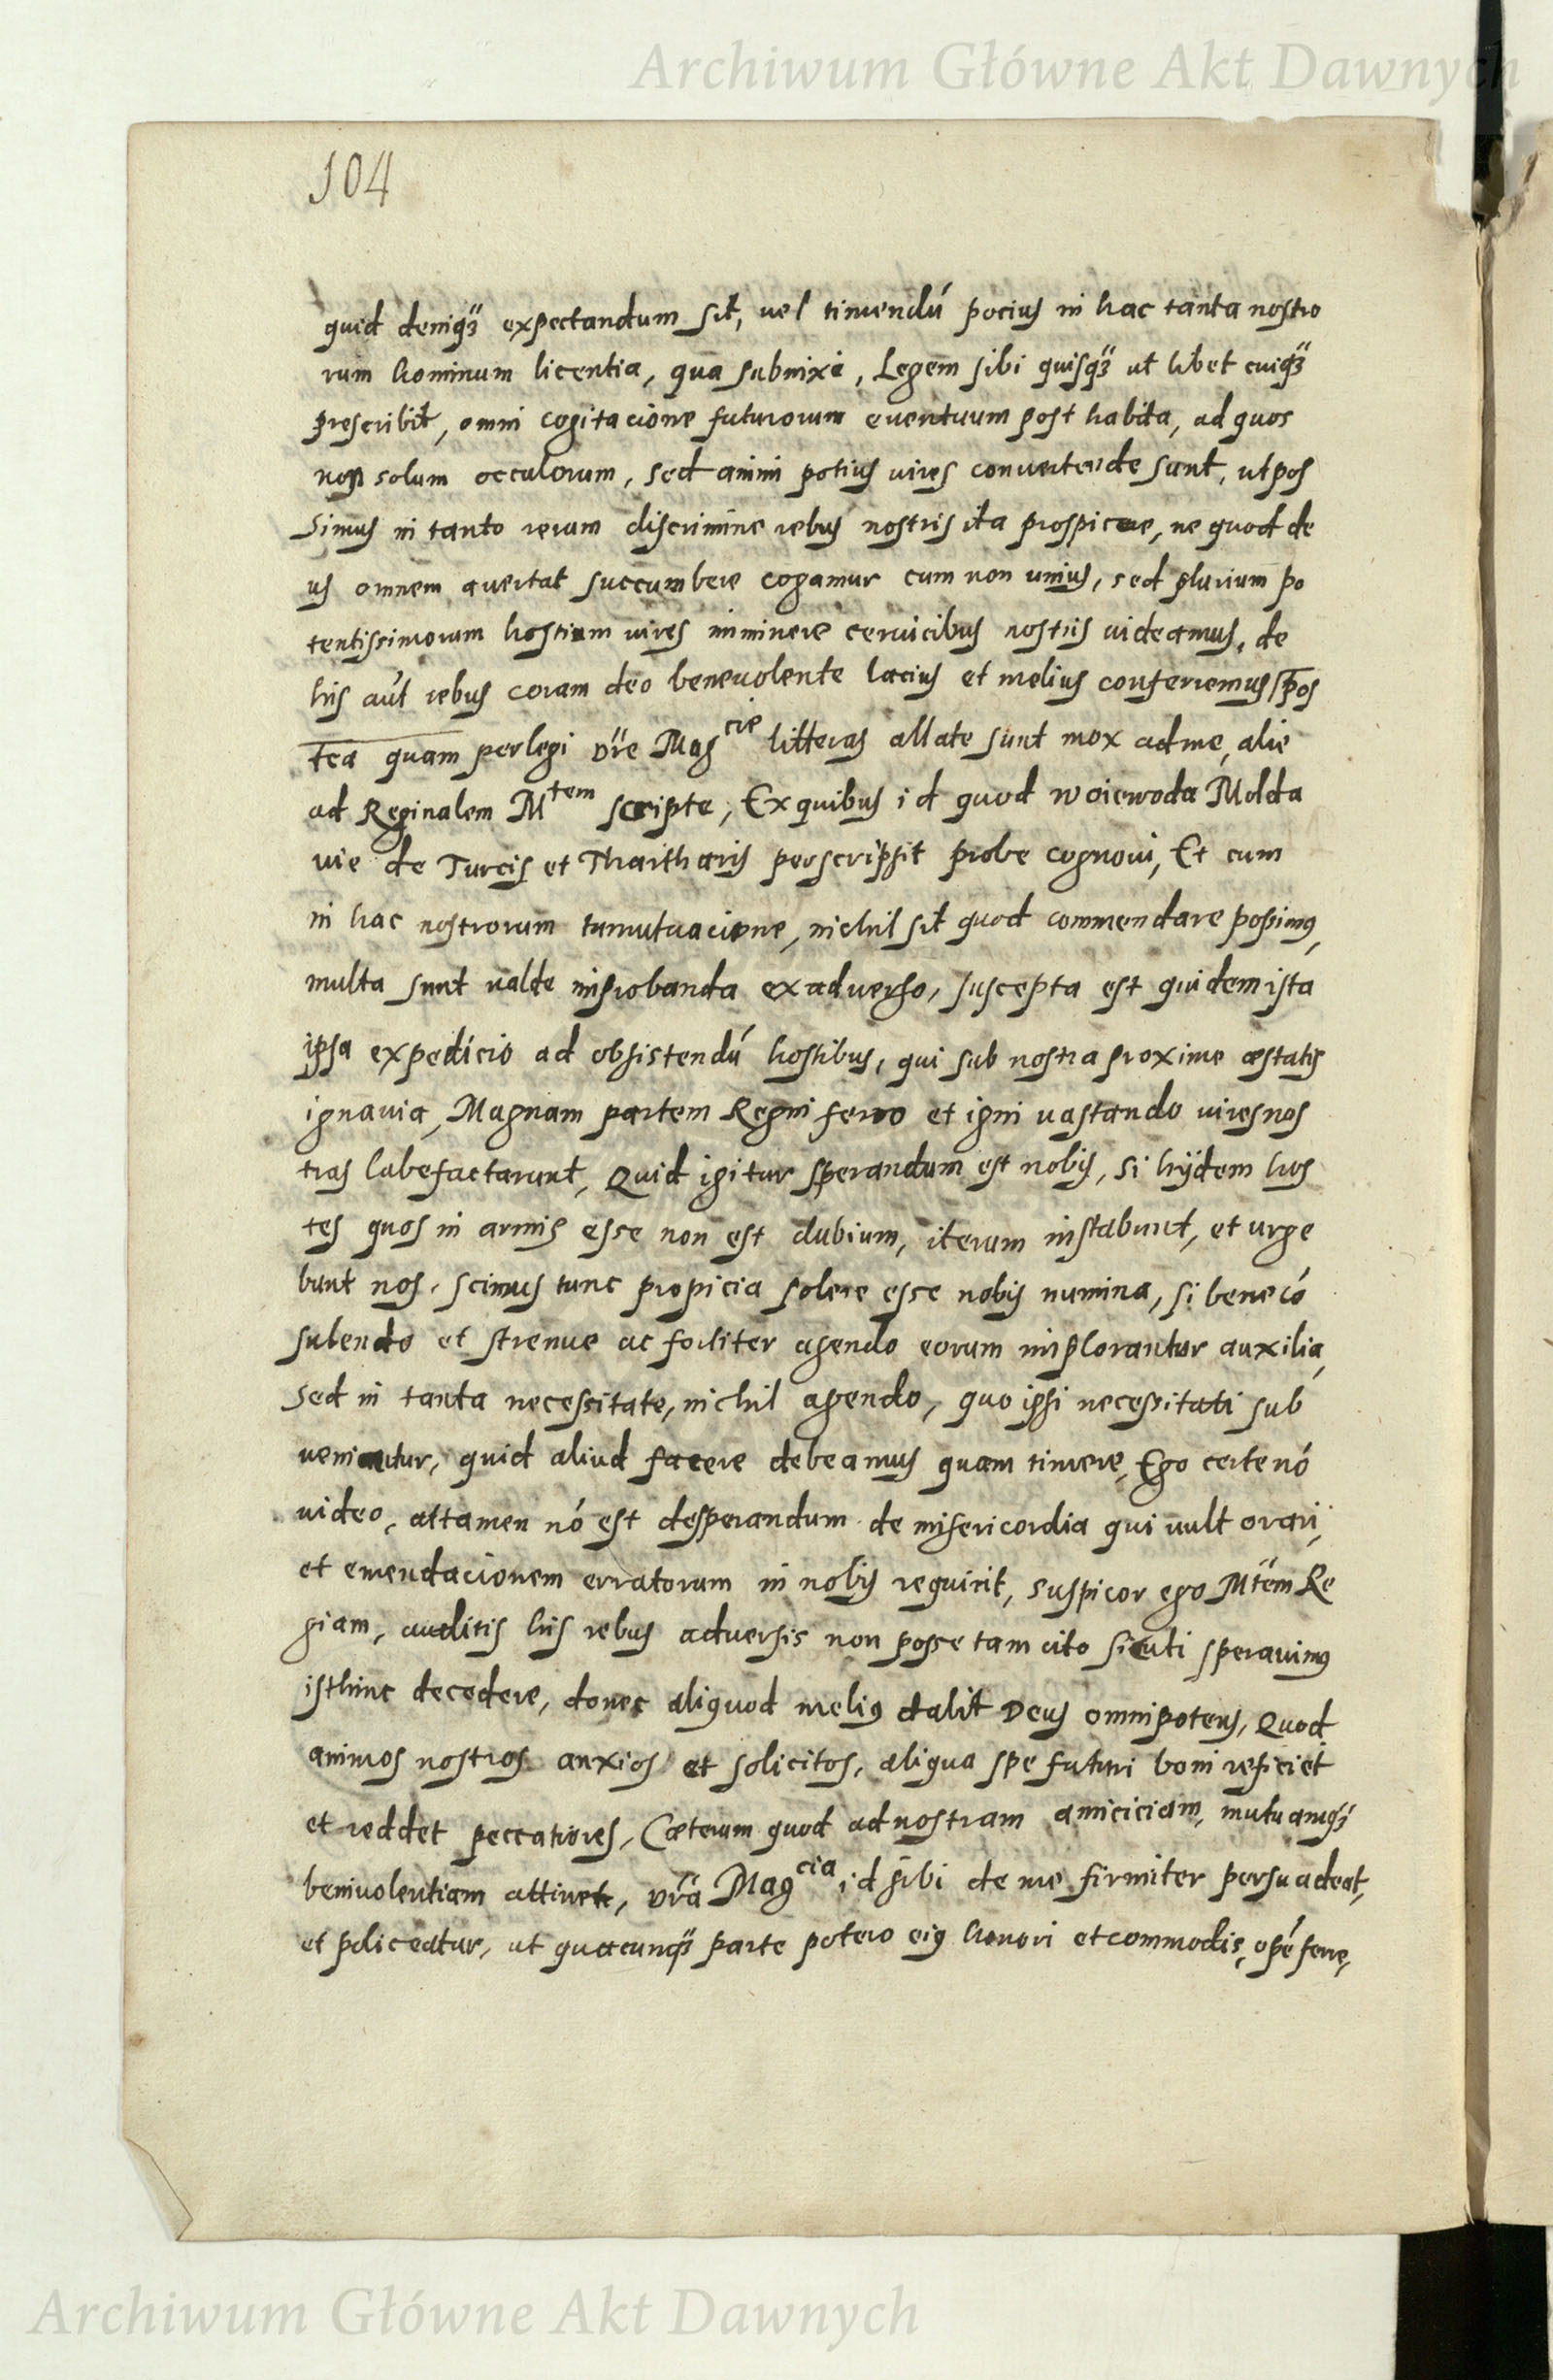 Archiwum Główne Akt Dawnych
104
quid deniqꝫ expectandum sit, uel timendú pocius in hac tanta nostro
rum hominum licentia, qua subnixi, Legem sibi quisqꝫ ut libet cuiqꝫ
prescribit, omni cogitacione futurorum euentuum post habita, ad quos
non solum occulorum, sed animi potius vires conuertende sunt, ut pos
simus in tanto rerum discrimine rebus nostris ita prospicere, ne quod de
us omnem auertat succumbere cogamur cum non unius, sed plurium po
tentissimorum hostium vires imminere ceruicibus nostris uideamus, de
his aút rebus coram deo beneuolente lacius et melius conferremus, pos
tea quam perlegi vr̃e Magcie litteras allate sunt mox ad me, alie
ad Reginalem Mtem scripte, Ex quibus id quod woiewoda Molda
uie de Turcis et Thartharis perscripsit probe cognoui, Et cum
in hac nostrorum tumutuacione, nichil sit quod commendare possimus,
multa sunt valde improbanda ex aduerso, suscepta est quidem ista
ipsa expedicio ad obsistendú hostibus, qui sub nostra proxime æstatis
ignauia, Magnam partem Regni ferro et igni vastando vires nos
tras labefactarunt, Quid igitur sperandum est nobis, si hijdem hos
tes quos in armis esse non est dubium, iterum instabunt, et urge
bunt nos, scimus tunc propicia solere esse nobis numina, si bene có
sulendo et strenue ac fortiter agendo eorum implorantur auxilia,
Sed in tanta necessitate, nichil agendo, quo ipsi necessitati sub
ueniatur, quid aliud facere debeamus quam timere, Ego certe nó
uideo, attamen nó est desperandum de misericordia qui vult orari,
et emendacionem erratorum in nobis requirit, suspicor ego Mtem Re
giam, auditis his rebus aduersis non posse tam cito sicuti sperauimus
isthinc decedere, donec aliquod melius dabit Deus omnipotens, Quod
animos nostros anxios et solicitos, aliqua spe futuri boni reficiet
et reddet peccatiores, Cæterum quod ad nostram amiciciam, mutuamqꝫ
beniuolentiam attinet, vr̃a Magcia id sibi de me firmiter persuadeat,
et policeatur, ut quacunqꝫ parte potero eius honori et commodis, opé ferre,
Archiwum Główne Akt Dawnych